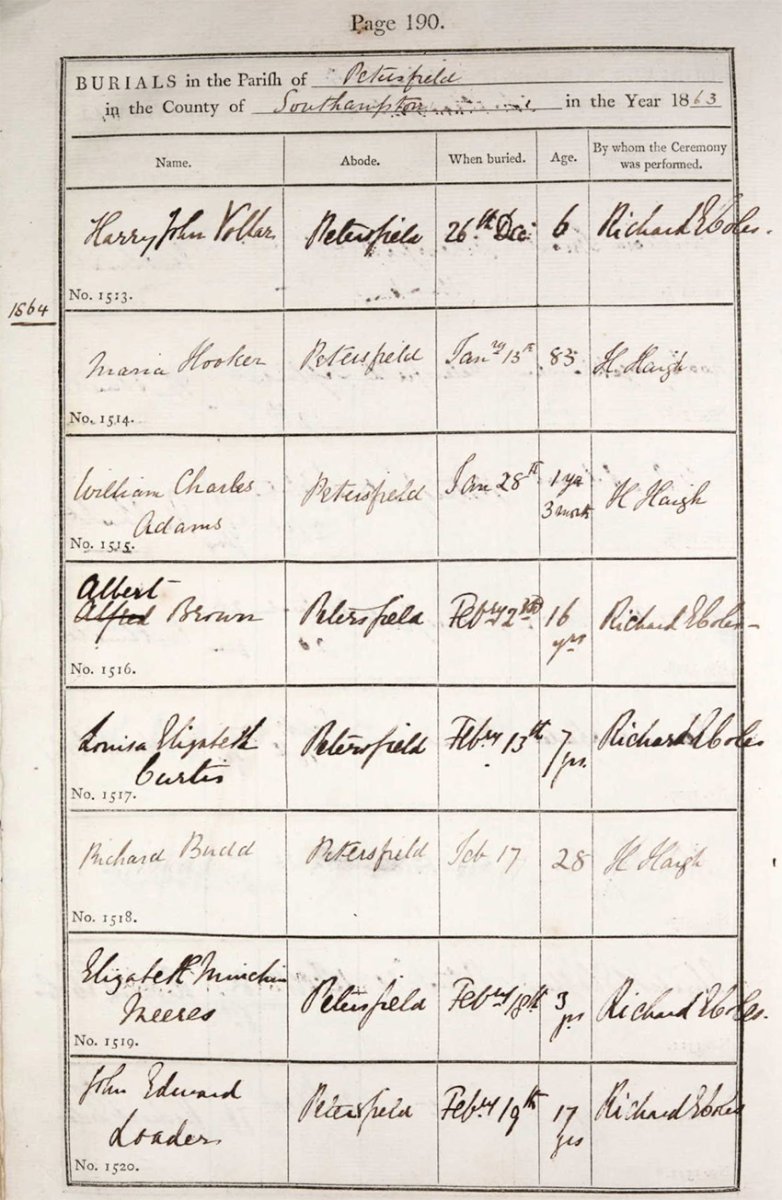 Page 190.
BURIALS in the Parish of Petersfield
in the County of Southampton in the Year 1863
Name. Abode. When buried. Age. By whom the Ceremony was performed.
Harry John Petersfield 26th Dec: 6 Richard E Coles.
No. 1513.
1864
Maria Hooker Petersfield Janry 13th 83 H Haigh
No. 1514.
William Charles Petersfield Jan 28th 1 yr H Haigh
Adams 3 mon
No. 1515.
Albert
Alfred Brown Petersfield Febry 2nd 16 Richard E Coles
yrs
No. 1516.
Louisa Elizabeth Petersfield Febry 13th 7 Richard E Coles
Curtis yrs.
No. 1517.
Richard Budd Petersfield Feb 17 28 H Haigh
No. 1518.
Elizabeth Minchin Petersfield Febry 18th 3 Richard E Coles.
Meeres yrs
No. 1519.
John Edward Petersfield Febry 19th 17 Richard E Coles
Loader yrs
No. 1520.